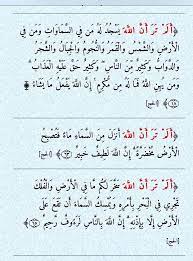 ﴿أَلَمْ تَرَ أَنَّ اللَّهَ يَسْجُدُ لَهُ مَن فِي السَّمَاوَاتِ وَمَن فِي
الْأَرْضِ وَالشَّمْسُ وَالْقَمَرُ وَالنُّجُومُ وَالْجِبَالُ وَالشَّجَرُ
وَالدَّوَابُّ وَكَثِيرٌ مِّنَ النَّاسِ وَكَثِيرٌ حَقَّ عَلَيْهِ الْعَذَابُ
وَمَن يُهِنِ اللَّهُ فَمَا لَهُ مِن مُّكْرِمٍ إِنَّ اللَّهَ يَفْعَلُ مَا يَشَاءُ
﴿١٨﴾ [الحج]
﴿أَلَمْ تَرَ أَنَّ اللَّهَ أَنزَلَ مِنَ السَّمَاءِ مَاءً فَتُصْبِحُ
الْأَرْضُ مُخْضَرَّةً إِنَّ اللَّهَ لَطِيفٌ خَبِيرٌ ﴿٦٣﴾ [الحج]
﴿أَلَمْ تَرَ أَنَّ اللَّهَ سَخَّرَ لَكُم مَّا فِي الْأَرْضِ وَالْفُلْكَ
تَجْرِي فِي الْبَحْرِ بِأَمْرِهِ وَيُمْسِكُ السَّمَاءَ أَن تَقَعَ عَلَى
الْأَرْضِ إِلَّا بِإِذْنِهِ إِنَّ اللَّهَ بِالنَّاسِ لَرَءُوفٌ رَّحِيمٌ
﴿٦٥﴾ [الحج]